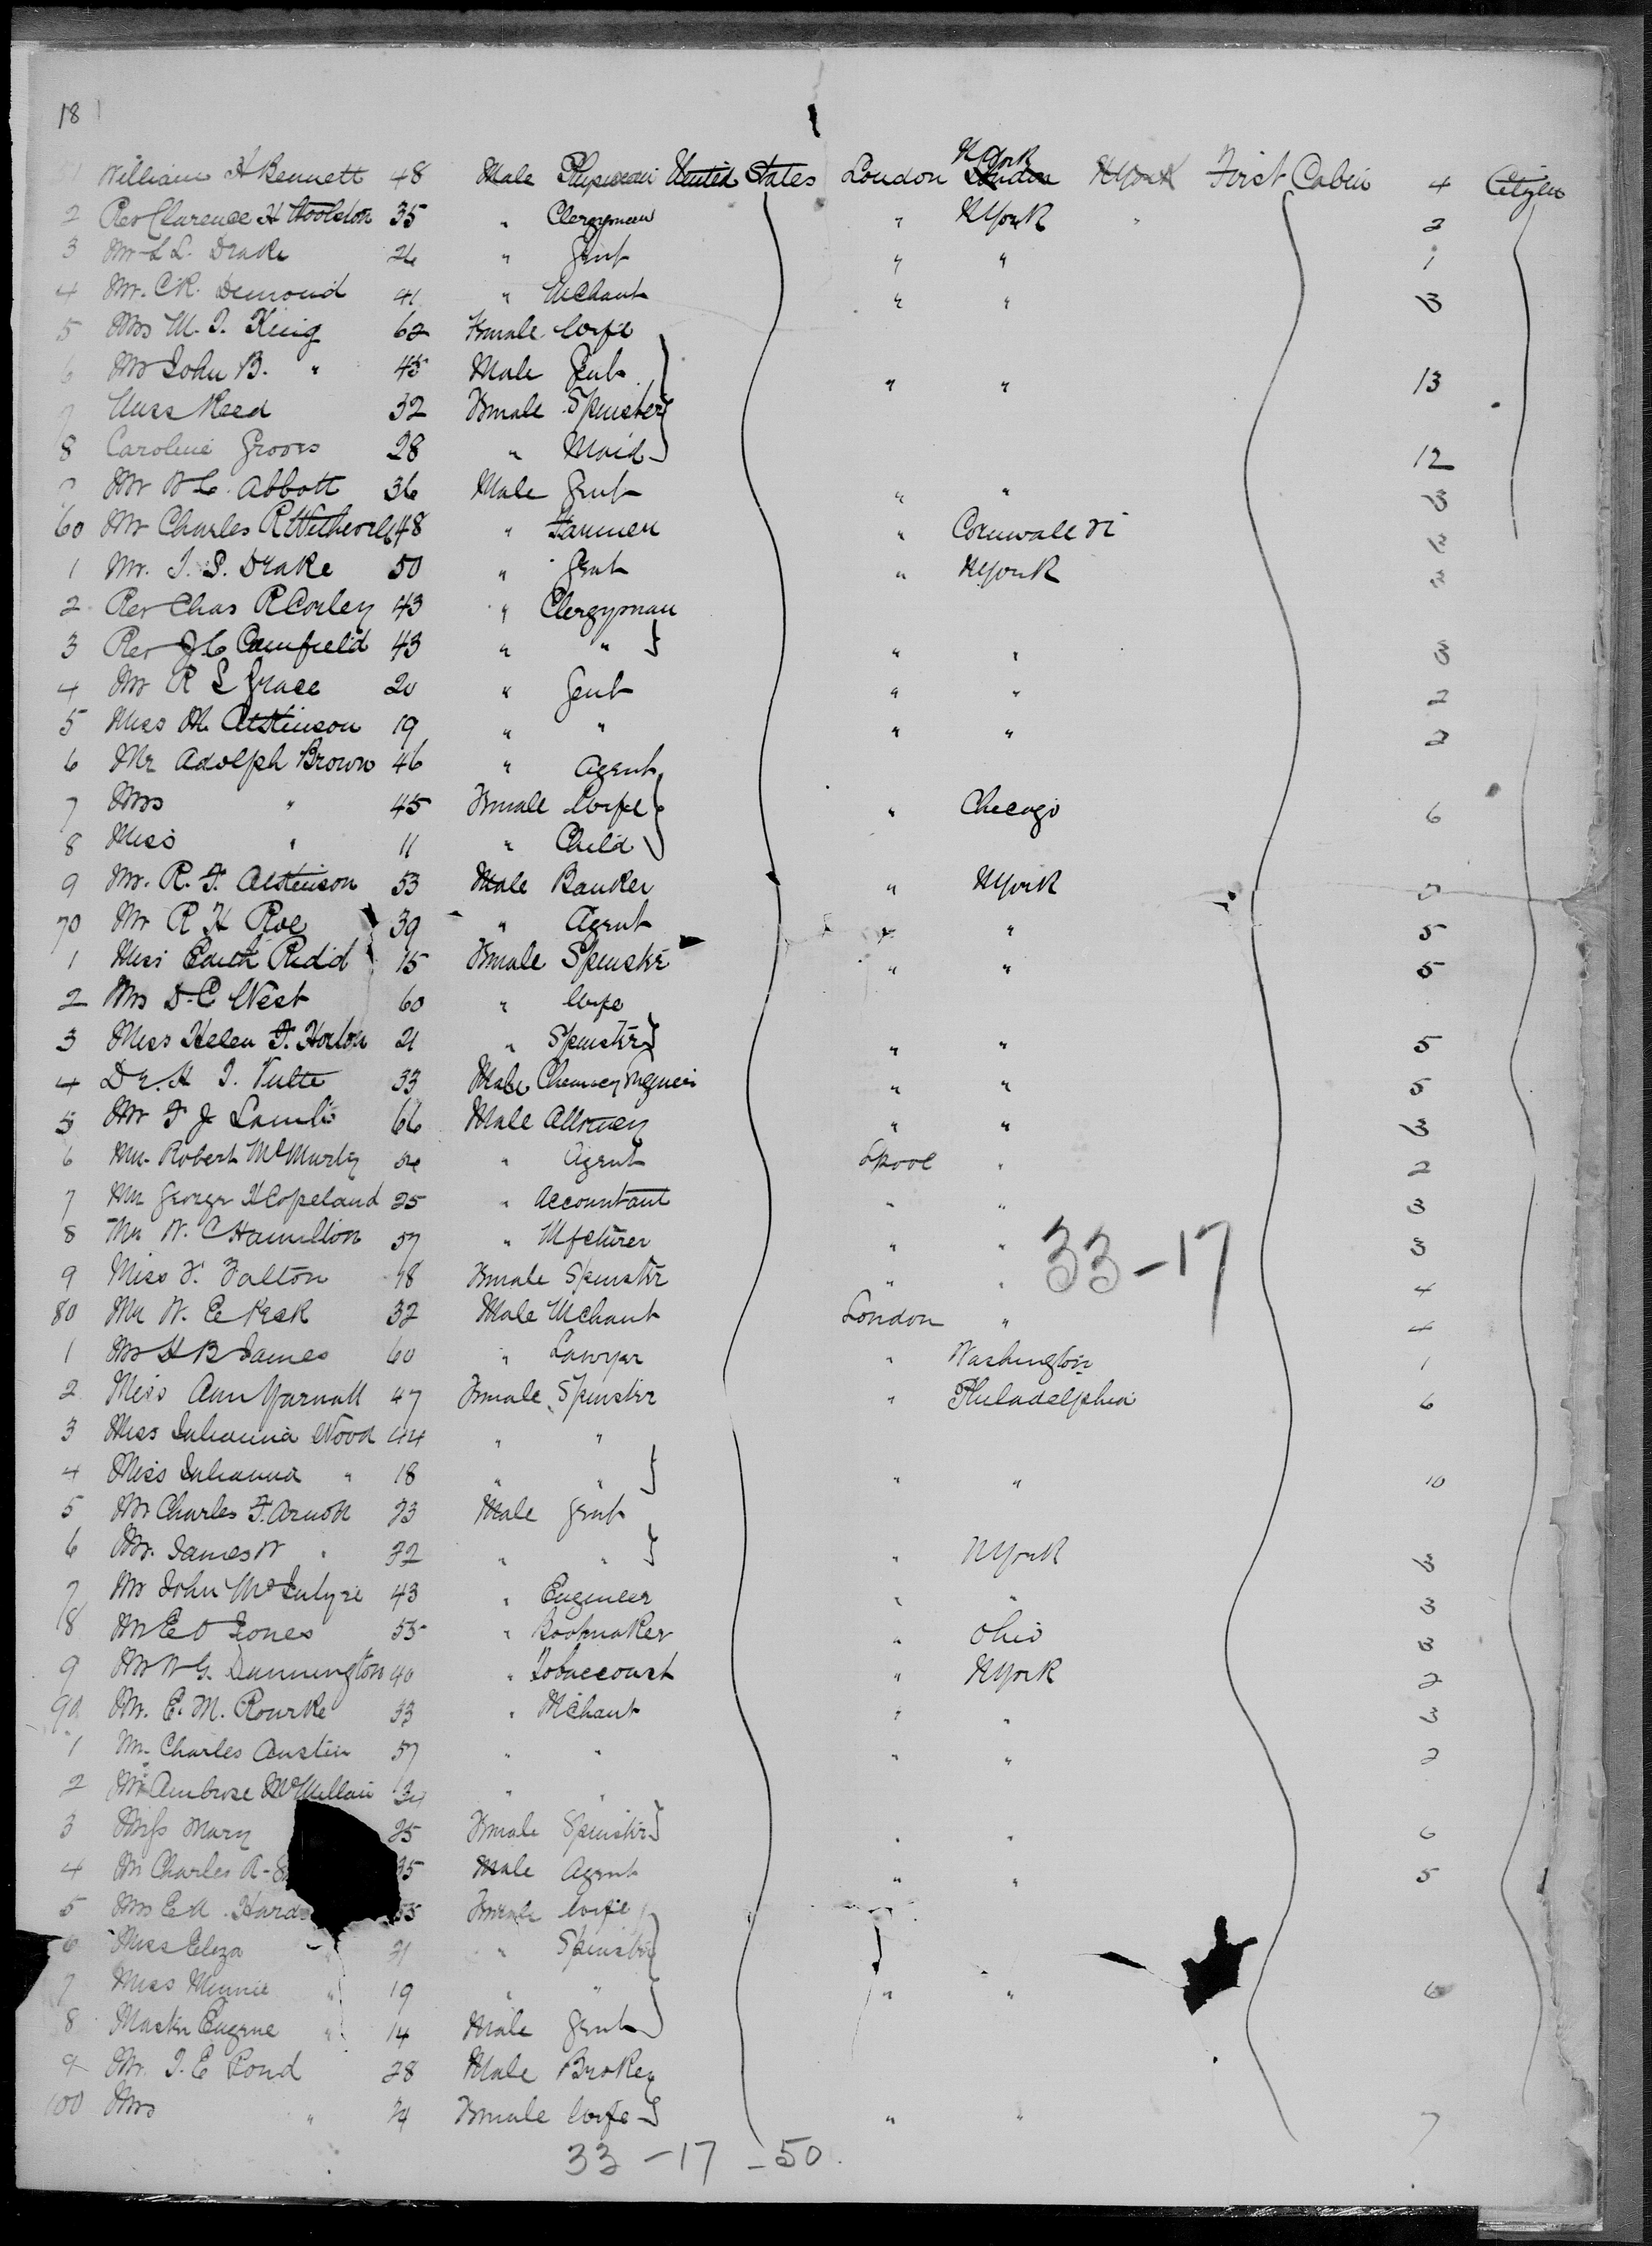 18
William H Bennett 48 Male Physician United States London N York London N York First Cabin 4 Citizen
2 Rev Clarence H Woolston 35 " Clergyman " N York " 2
3 Mr L L. Drake 26 " Gent " " 1
4 Mr. C R. Demond 41 " Mchant " " 3
5 Mrs M. J. King 62 Female Wife
6 Mr John B. " 45 Male Gent " " 13
7 Miss Reed 32 Female Spinster
8 Caroline Groves 28 " Maid 12
Mr W C. Abbott 36 Male Gent " " 3
60 Mr Charles R 48 " Farmer " Cornwall 3
1 Mr. J. S. Drake 50 " Gent " N York 3
2 Rev Chas R Corley 43 " Clergyman
3 Rev J C Camfield 43 " " " " 3
4 Mr R L Grace 20 " Gent " " 2
5 Miss M. Atkinson 19 " " " " 2
6 Mr Adolph Brown 46 " Agent
7 Mrs " 45 Female Wife " Chicago 6
8 Miss " 11 " Child
9 Mr. R. F. 53 Male Banker " N York
70 Mr R H Roe 39 " Agent " " 5
1 Miss Edith Redd 15 Female Spinster " " 5
2 Mrs D. C West 60 " Wife
3 Miss Helen F. Horton 21 " Spinster " " 5
4 Dr. H J. Vulte 33 Male " " 5
5 Mr F J Lamb 66 Male Attorney " " 3
6 Mr. Robert " Agent Lpool " 2
7 Mr George H Copeland 25 " Accountant " " 3
8 Mr W. C Hamilton 57 " Mfcturer " " 3
33-17
9 Miss F. Falton 48 Female Spinster " " 4
80 Mr W. E Peck 32 Male Mchant London " 4
1 Mr H B James 60 " Lawyer " Washington 1
2 Miss Ann Yarnall 47 Female Spinster " Philadelphia 6
3 Miss Julianna Wood 44 " "
4 Miss Julianna " 18 " " " " 10
5 Mr Charles F. Arnott 23 Male Gent
6 Mr. James W " 32 " " " N York 3
7 Mr John McIntyre 43 " Engineer " " 3
8 Mr E O Jones 55 " Bookmaker " Ohio 3
9 Mr W G. Dunnington 40 " Tobacconist " N York 2
90 Mr. E. M. Rourke 33 " Mchant " " 3
1 Mr. Charles Austin 57 " " " " 2
2 Mr Ambrose McMillan " "
3 Miss Mary 25 Female Spinster " " 6
4 Mr Charles A. 35 Male Agent " " 5
5 Mrs E A 55 Female Wife
6 Miss Eliza 21 " Spinster
7 Miss Minnie " 19 " " " " 6
8 Master Eugene " 14 Male Gent
9 Mr. J. E Pond 28 Male Broker
100 Mrs " 24 Female Wife " " 7
33 - 17 - 50.